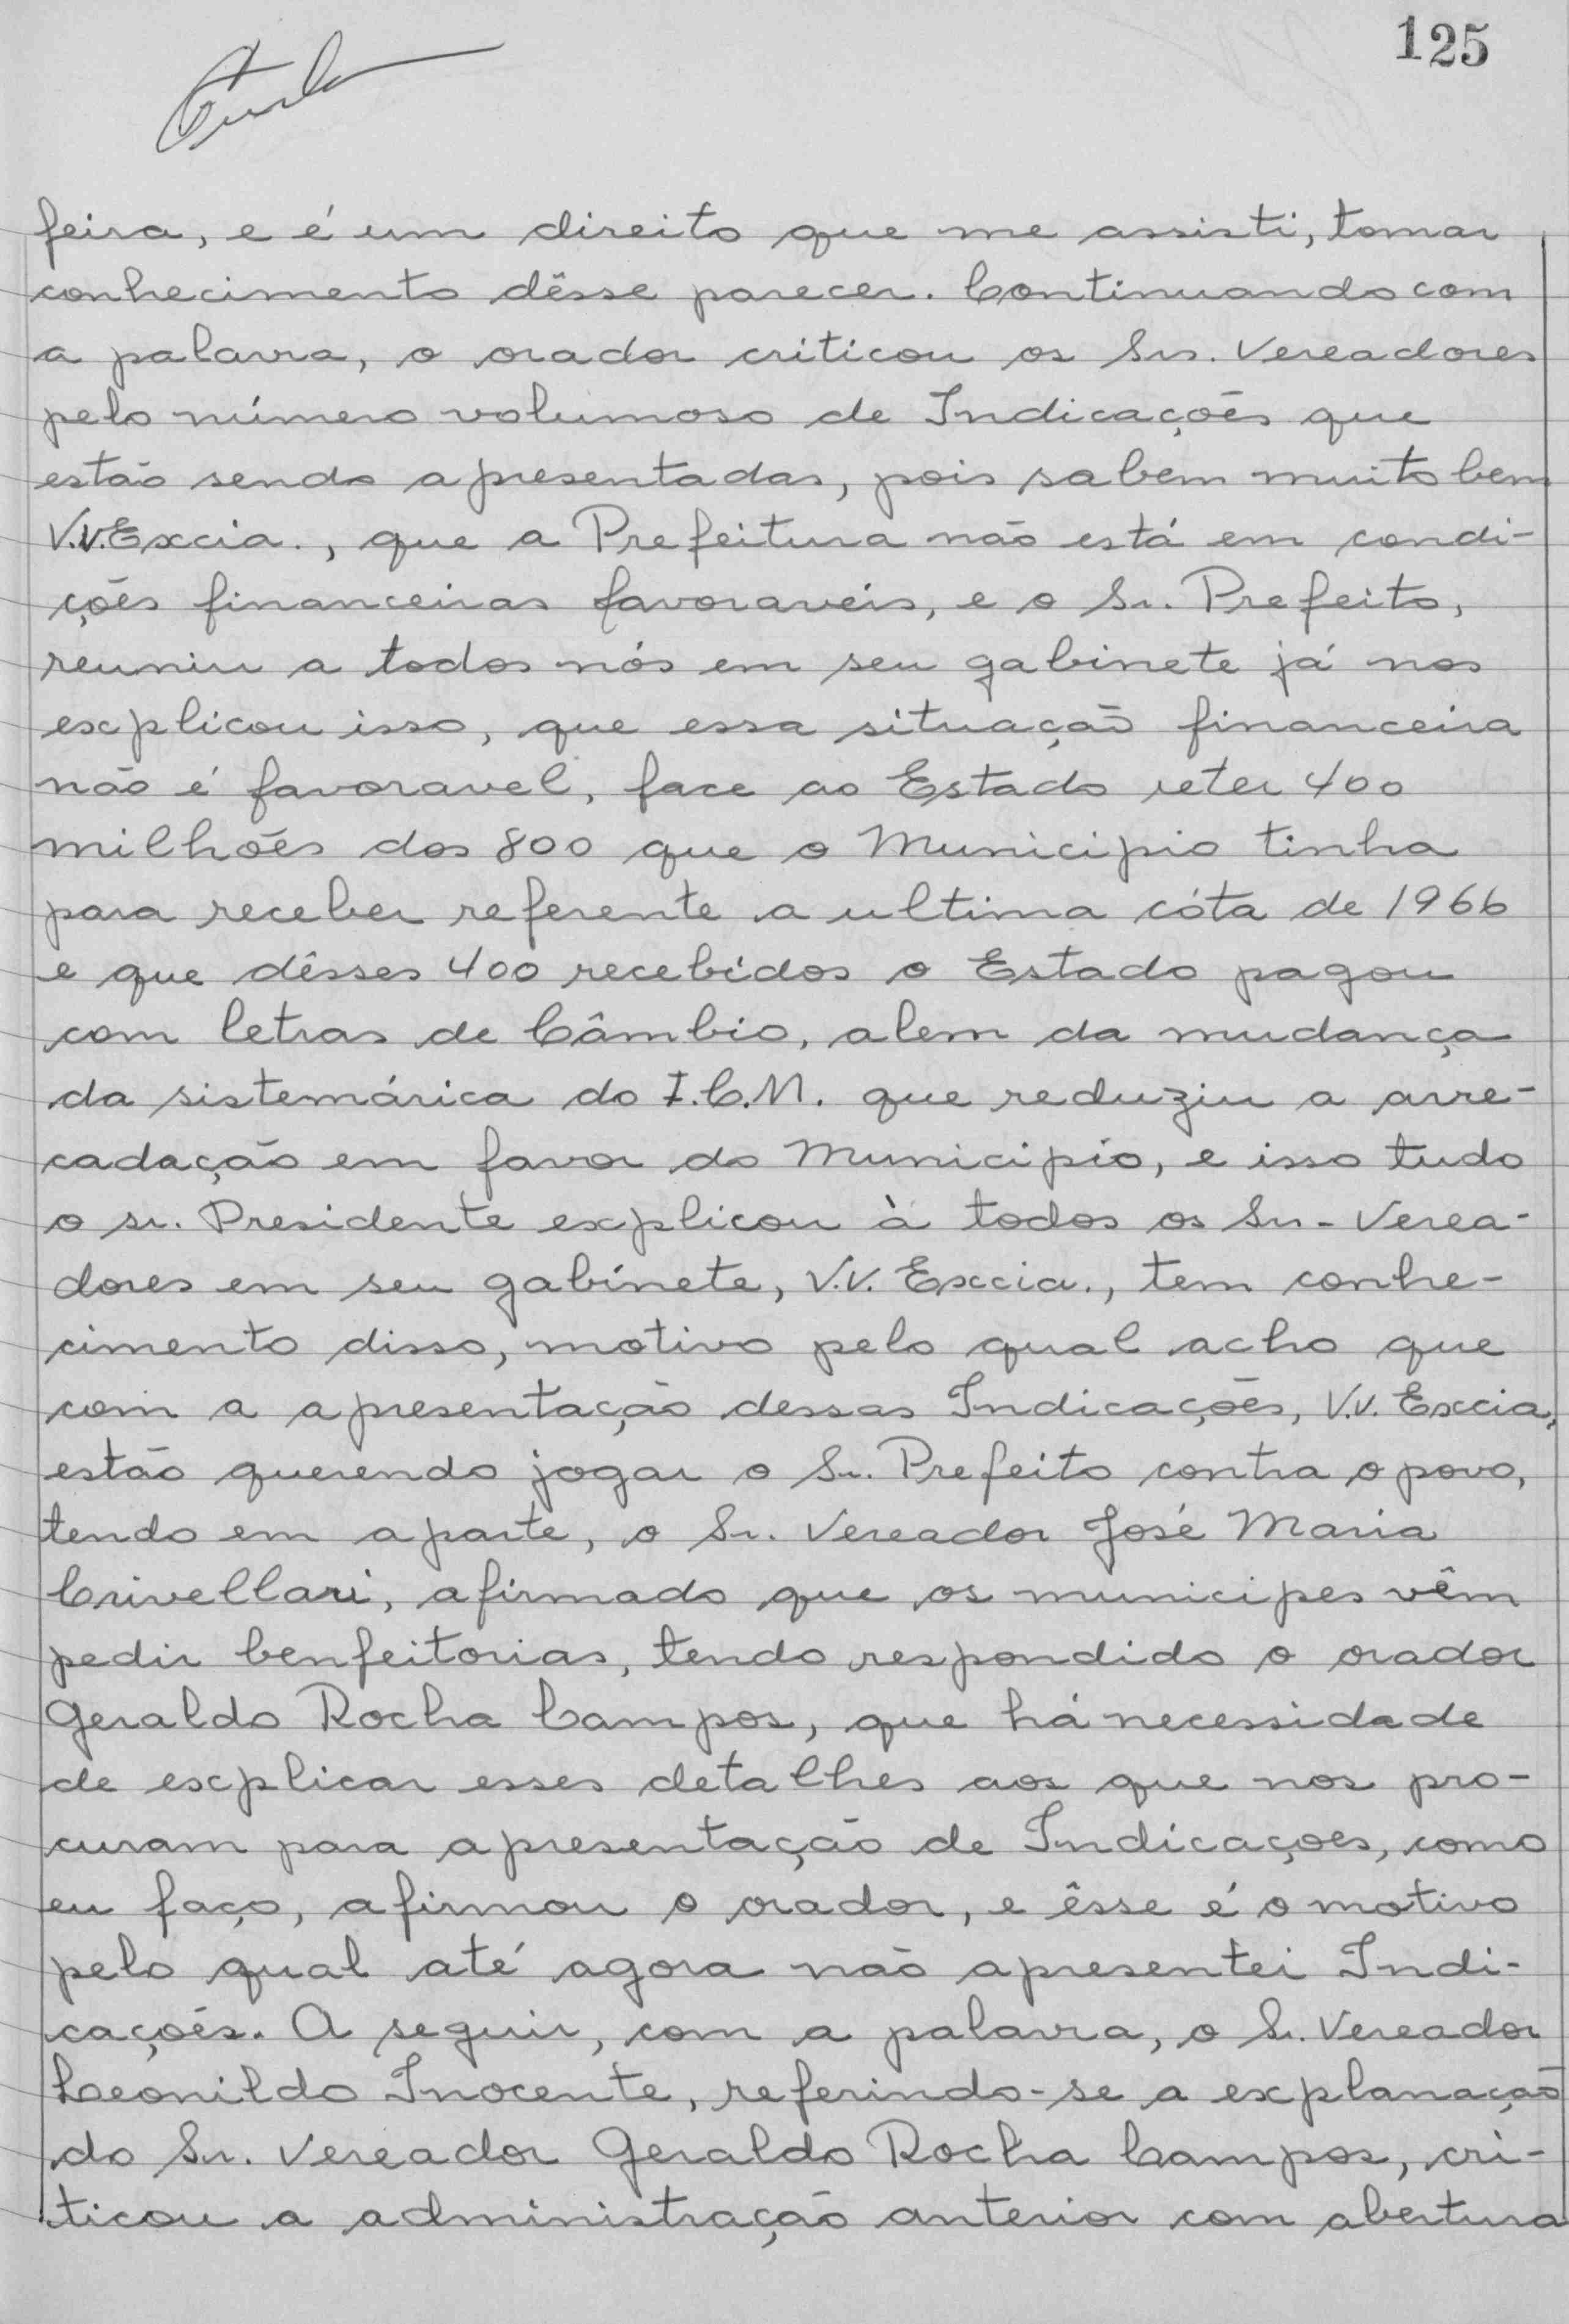 125
feira, e é um direito que me assisti, tomar
conhecimento dêsse parecer. Continuando com
a palavra, o orador criticou os Srs. Vereadores
pelo número volumoso de Indicações que
estão sendo apresentadas, pois sabem muito bem
V.V.Excia., que a Prefeitura não está em condi-
ções financeiras favoraveis, e o Sr. Prefeito,
reuniu a todos nós em seu gabinete já nos
explicou isso, que essa situação financeira
não é favoravel, face ao Estado reter 400
milhões dos 800 que o Municipio tinha
para receber referente a ultima cóta de 1966
e que dêsses 400 recebidos o Estado pagou
com letras de Câmbio, alem da mudança
da sistemárica do I.C.M. que reduziu a arre-
cadação em favor do Municipio, e isso tudo
o sr. Presidente explicou à todos os Srs. Verea-
dores em seu gabinete, V.V. Excia., tem conhe-
cimento disso, motivo pelo qual acho que
com a apresentação dessas Indicações, V.V. Excia,
estão querendo jogar o Sr. Prefeito contra o povo,
tendo em aparte, o Sr. Vereador José Maria
Crivellari, afirmado que os municipes vêm
pedir benfeitorias, tendo respondido o orador
Geraldo Rocha Campos, que há necessidade
de explicar esses detalhes aos que nos pro-
curam para apresentação de Indicações, como
eu faço, afirmou o orador, e êsse é o motivo
pelo qual até agora não apresentei Indi-
cações. A seguir, com a palavra, o Sr. Vereador
Leonildo Inocente, referindo-se a explanação
do Sr. Vereador Geraldo Rocha Campos, cri-
ticou a administração anterior com abertura